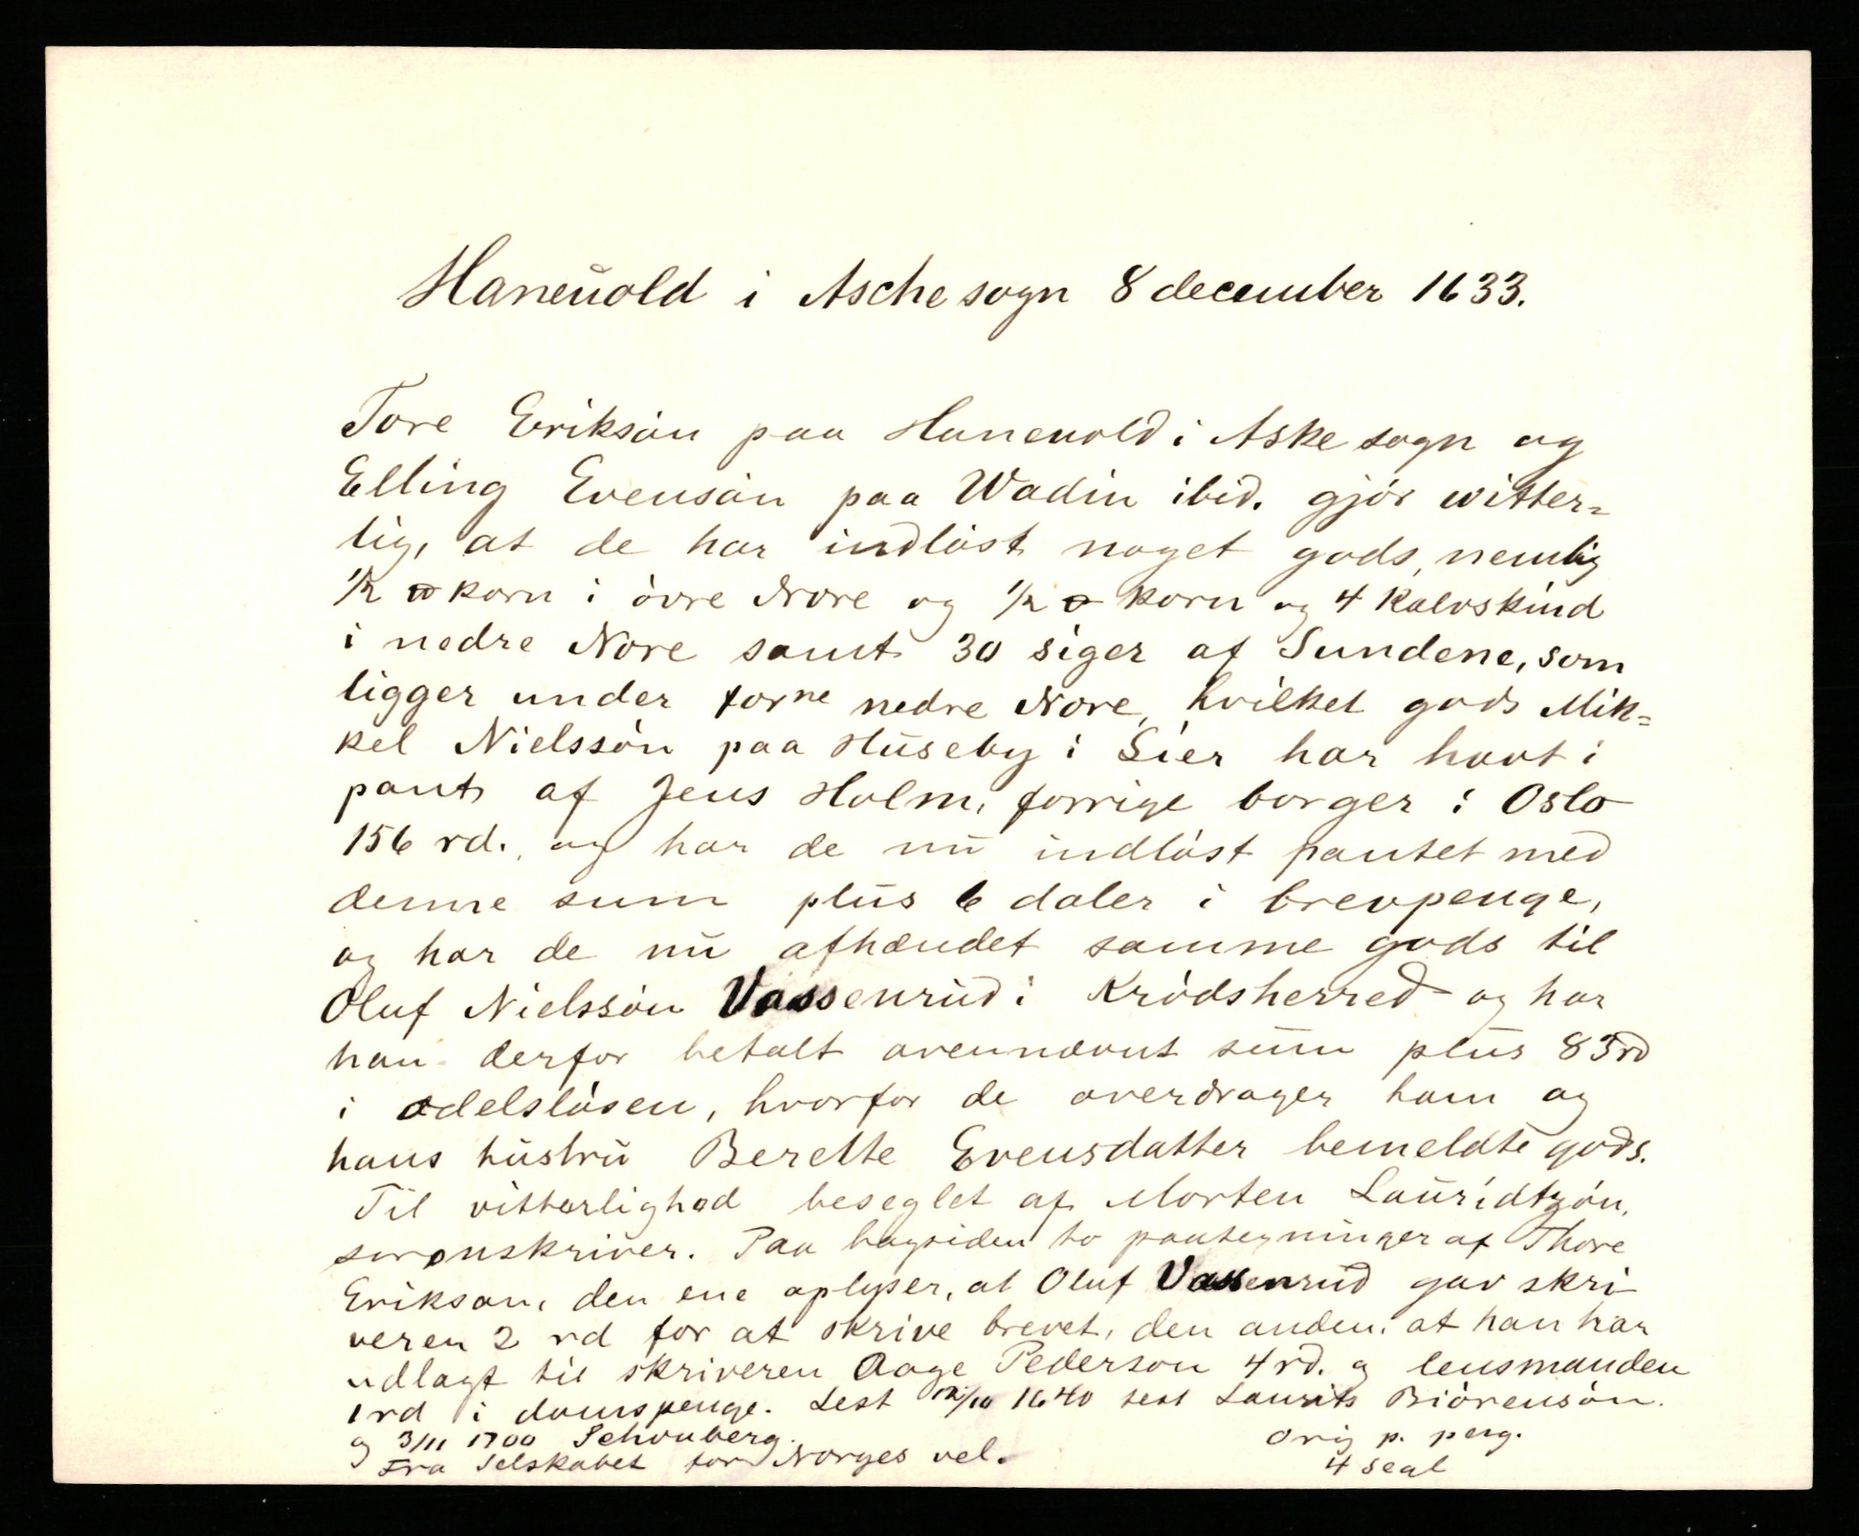 Haneuold i Asche sogn 8 december 1633.
Tore Eriksön paa Haneuold i Aske sogn og
Elling Evensön paa Wadin ibid. gjör witter=
lig, at de har indlöst noget gods, nemlig
1/2 korn i övre Nore og 1/2 korn og 4 kalvskind
i nedre Nore samt 30 siger af Sundene, som
ligger under forne nedre Nore, hvilket gods Mik=
kel Nielssön paa Huseby i Lier har havt i
pant af Jens Holm, forrige borger i Oslo
156 rd., og har de nu indlöst pantet med
denne sum plus 6 daler i brevpenge,
og har de nu afhændet samme gods til
Oluf Nielssön Vassenrud i Krödsherred og har
han derfor betalt ovennævnt sum plus 83 rd
i odelslösen, hvorfor de overdrager ham og
hans hustru Berette Evensdatter bemeldte gods.
Til vitterlighed beseglet af Morten Lauridtzön,
sorenskriver. Paa bagsiden to paategninger af Thore
Erikson, den ene oplyser, at Oluf Vassenrud gav skri
veren 2 rd for at skrive brevet, den anden, at han har
udlagt til skriveren Aage Pederson 4 rd. og lensmanden
1 rd i domspenge. Lest 12/10 1640 test Laurits Biörensön.
og 3/11 1700 Schouberg.
Orig p. perg.
Fra Selskabet for Norges vel.
4 segl